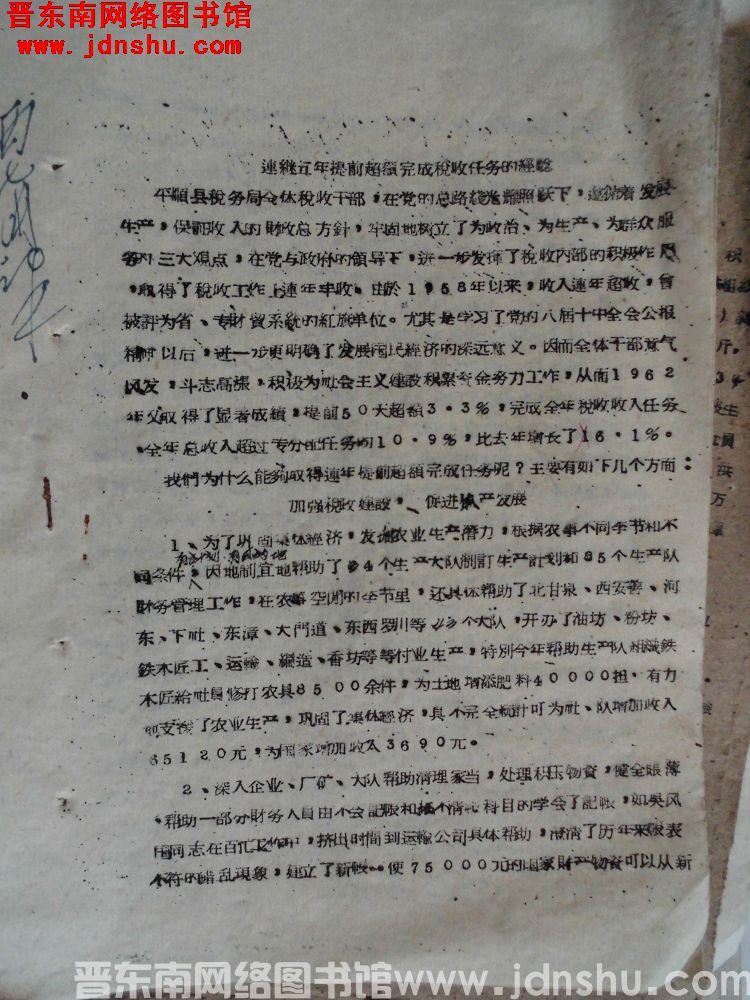 晋东南网络图书馆
www.jdnshu.com
連継五年提前超額完成稅收任务的經验
平順县稅务局全体稅收干部,在党的总路綫光輝照跃下,遵循着发展
生产,保証收入的財政总方針,牢固地树立了为政治、为生产、为群众服
务的三大观点,在党与政府的領导下,进一步发揮了稅收内部的积极作用
,取得了稅收工作上連年丰收。由於1958年以来,收入連年超收,曾
被評为省、专財貿系統的紅旗单位。尤其是学习了党的八届十中全会公报
精神以后,进一步更明确了发展国民經济的深远意义。因而全体干部意气
风发,斗志高漲,积极为社会主义建設积累資金努力工作,从而1962
年又取得了显著成績,提前50天超額3·3%,完成全年稅收收入任务
,全年总收入超过专分配任务的10·9%,比去年增长了16·1%。
我們为什么能夠取得連年提前超額完成任务呢?主要有如下几个方面:
加强稅政建設,促进生产发展
1、为了巩固集体經济,发掘农业生产潜力,根据农事不同季节和不
同条件,因地制宜地帮助了 4个生产大队制訂生产計划和85个生产队
財务管理工作,在农事空閒的季节里,还具体帮助了北甘泉、西安善、河
东、下社、东漳、大門道、东西罗川等 个大队,开办了油坊、粉坊、
鉄木匠工、运輸、編造、香坊等等付业生产,特別今年帮助生产队組織鉄
木匠給社員修打农具8500余件,为土地增添肥料40000担,有力
的支援了农业生产,巩固了集体經济,具不完全統計可为社、队增加收入
65120元,为国家增加收入3690元。
2、深入企业、厂矿、大队帮助清理家当,处理积压物資,健全賬簿
,帮助一部分財务人員由不会記賬和搞不清 科目的学会了記賬,如吳风
国同志在百忙工作中,挤出时間到运輸公司具体帮助,澄清了历年来賬表
不符的錯乱現象,建立了新賬,使75000元的国家財产物資可以从新
晋东南网络图书馆www.jdnshu.com